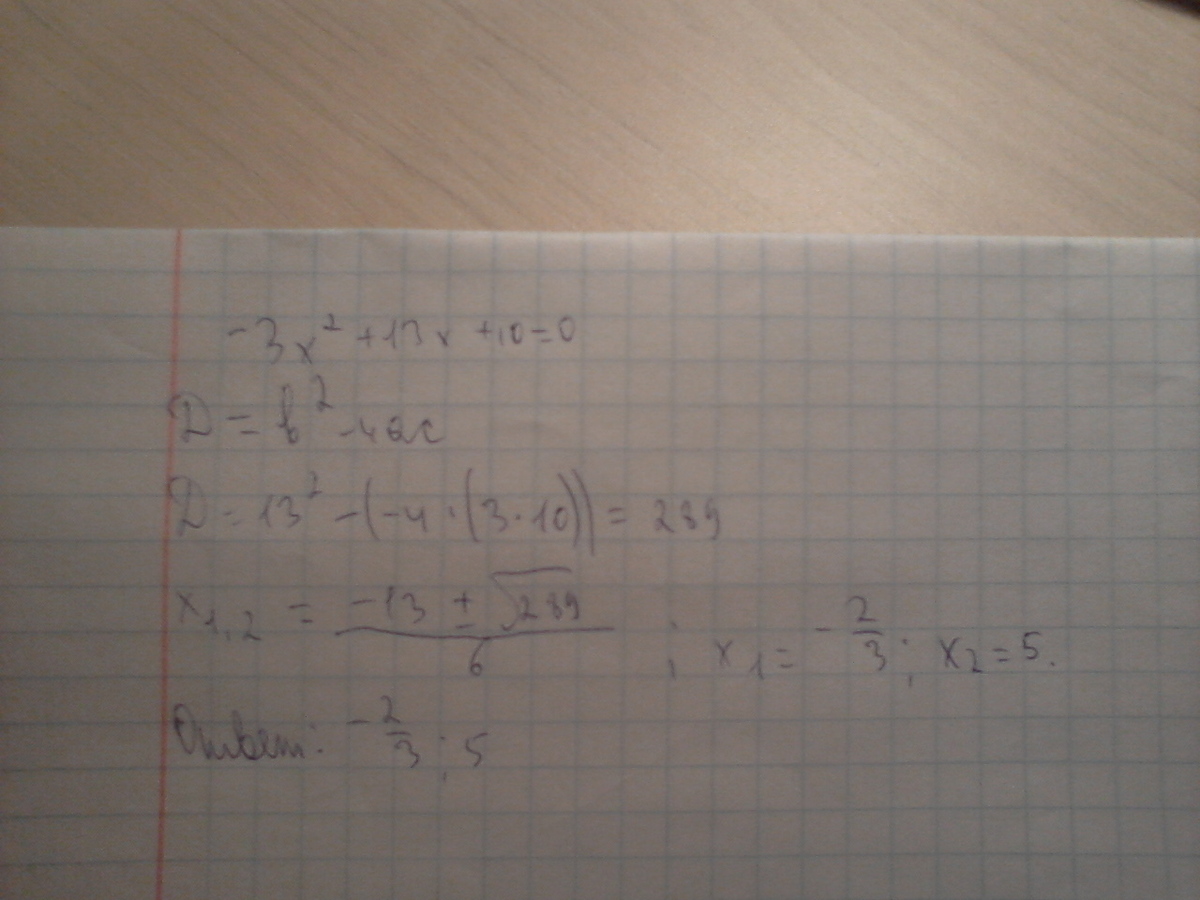 -3x² + 13x + 10 = 0
D = b² - 4ac
D = 13² - (-4 · (3 · 10)) = 289
x₁,₂ = (-13 ± √289) / 6 ; x₁ = -2/3 ; x₂ = 5.
Ответ: -2/3 ; 5